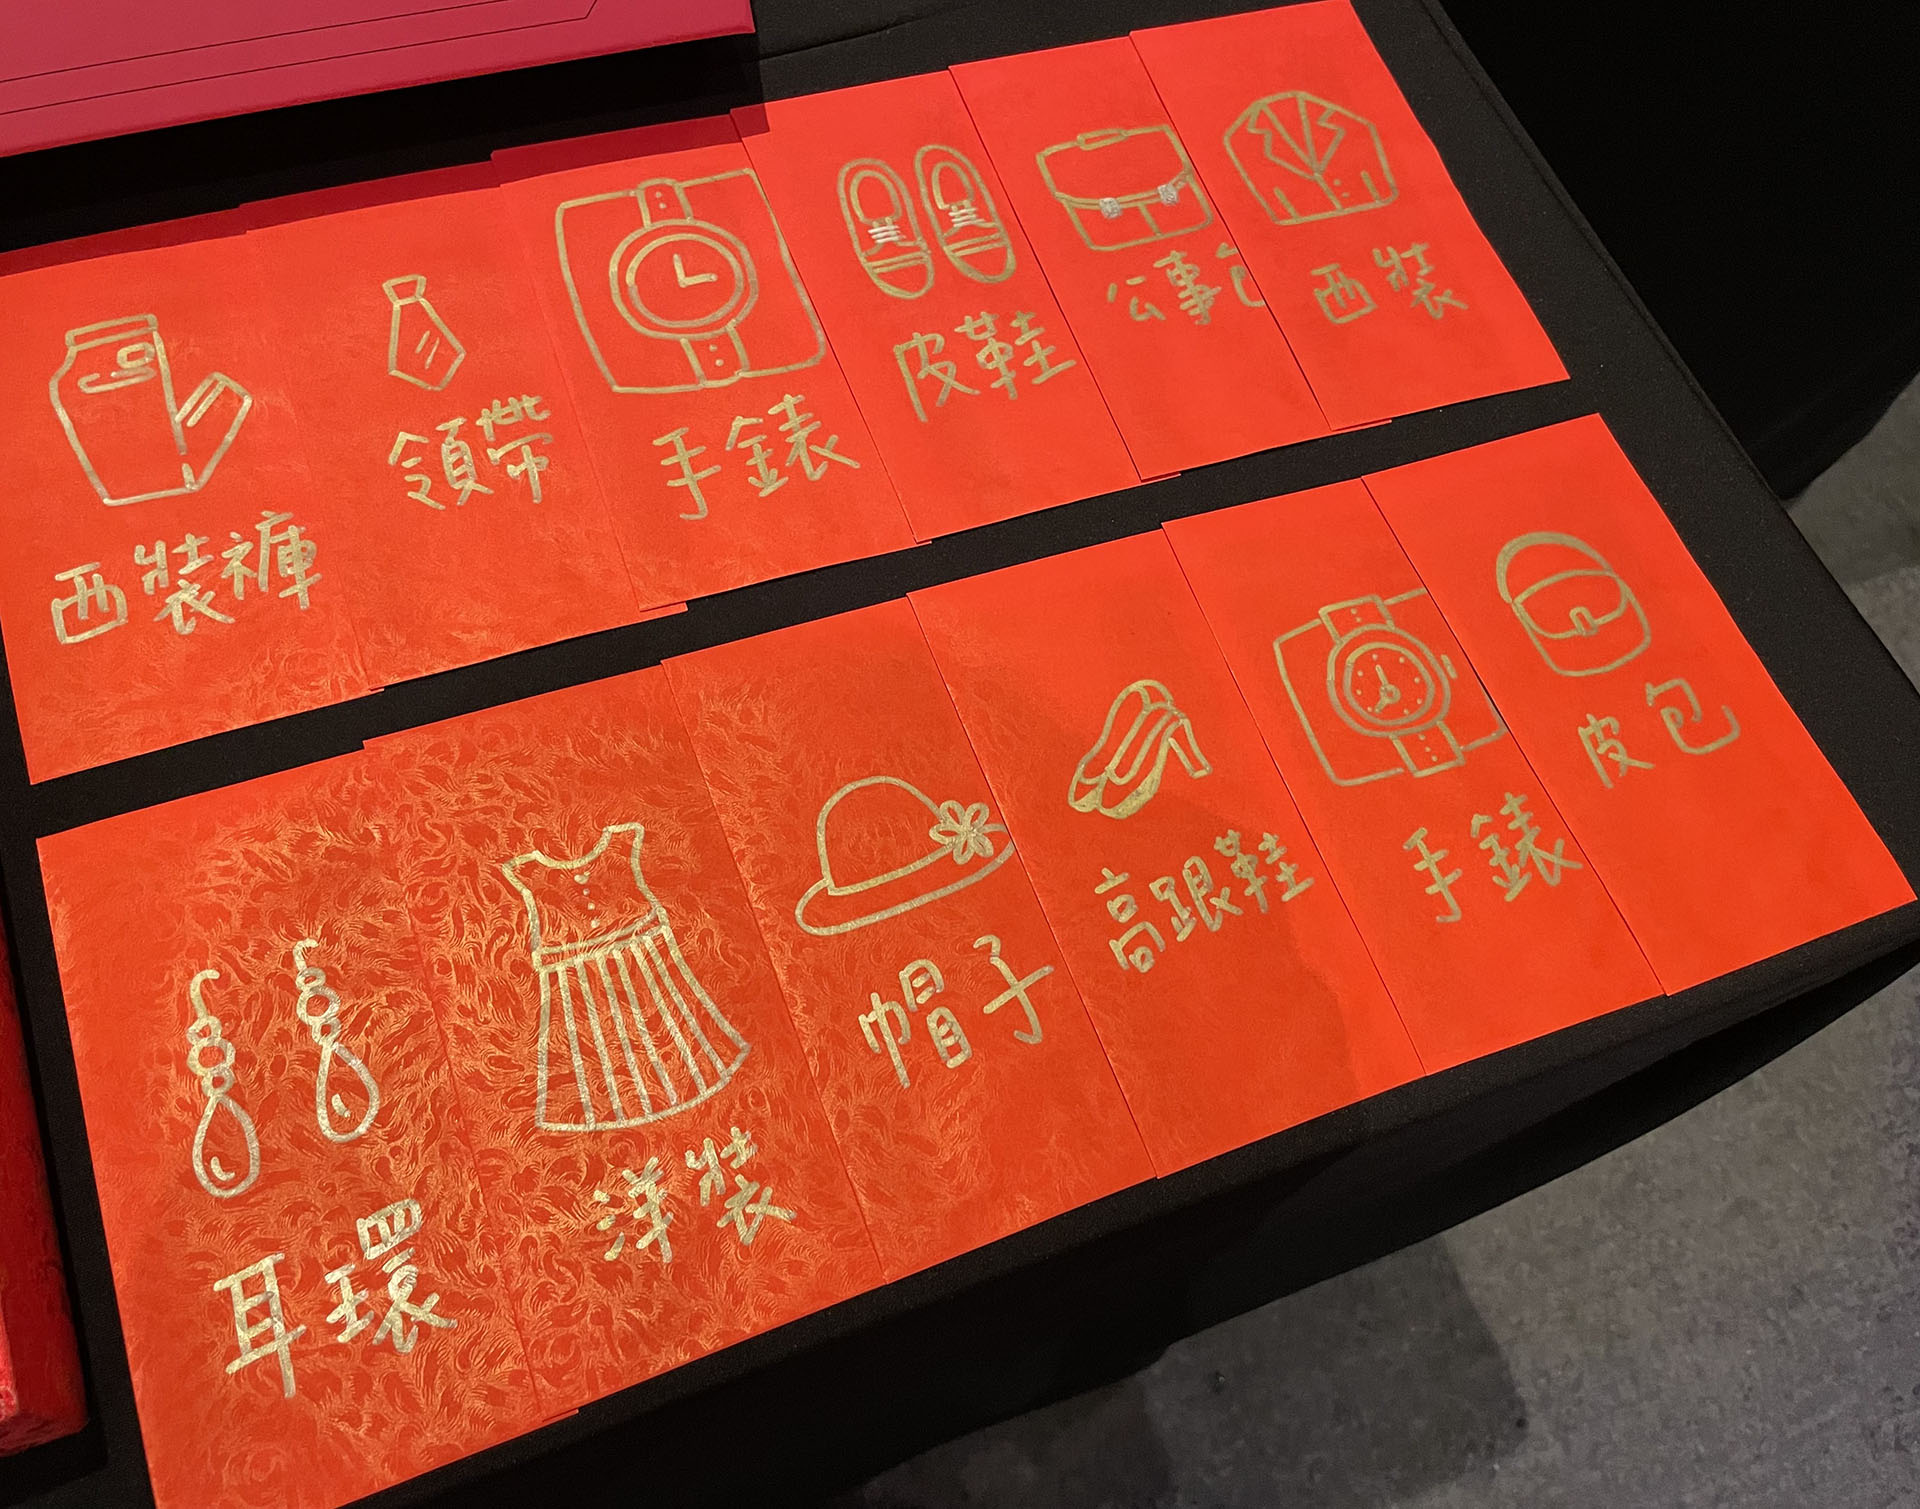 西裝褲
領帶
手錶
皮鞋
公事包
西裝
耳環
洋裝
帽子
高跟鞋
手錶
皮包